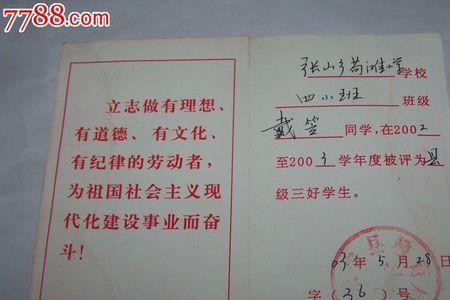 7788.com
立志做有理想、
有道德、有文化、
有纪律的劳动者，
为祖国社会主义现
代化建设事业而奋
斗！
张山乡荷滩小学校
四小班班级
戴笠同学,在2002
至2003学年度被评为县
级三好学生。
03年5月28日
字(36)号